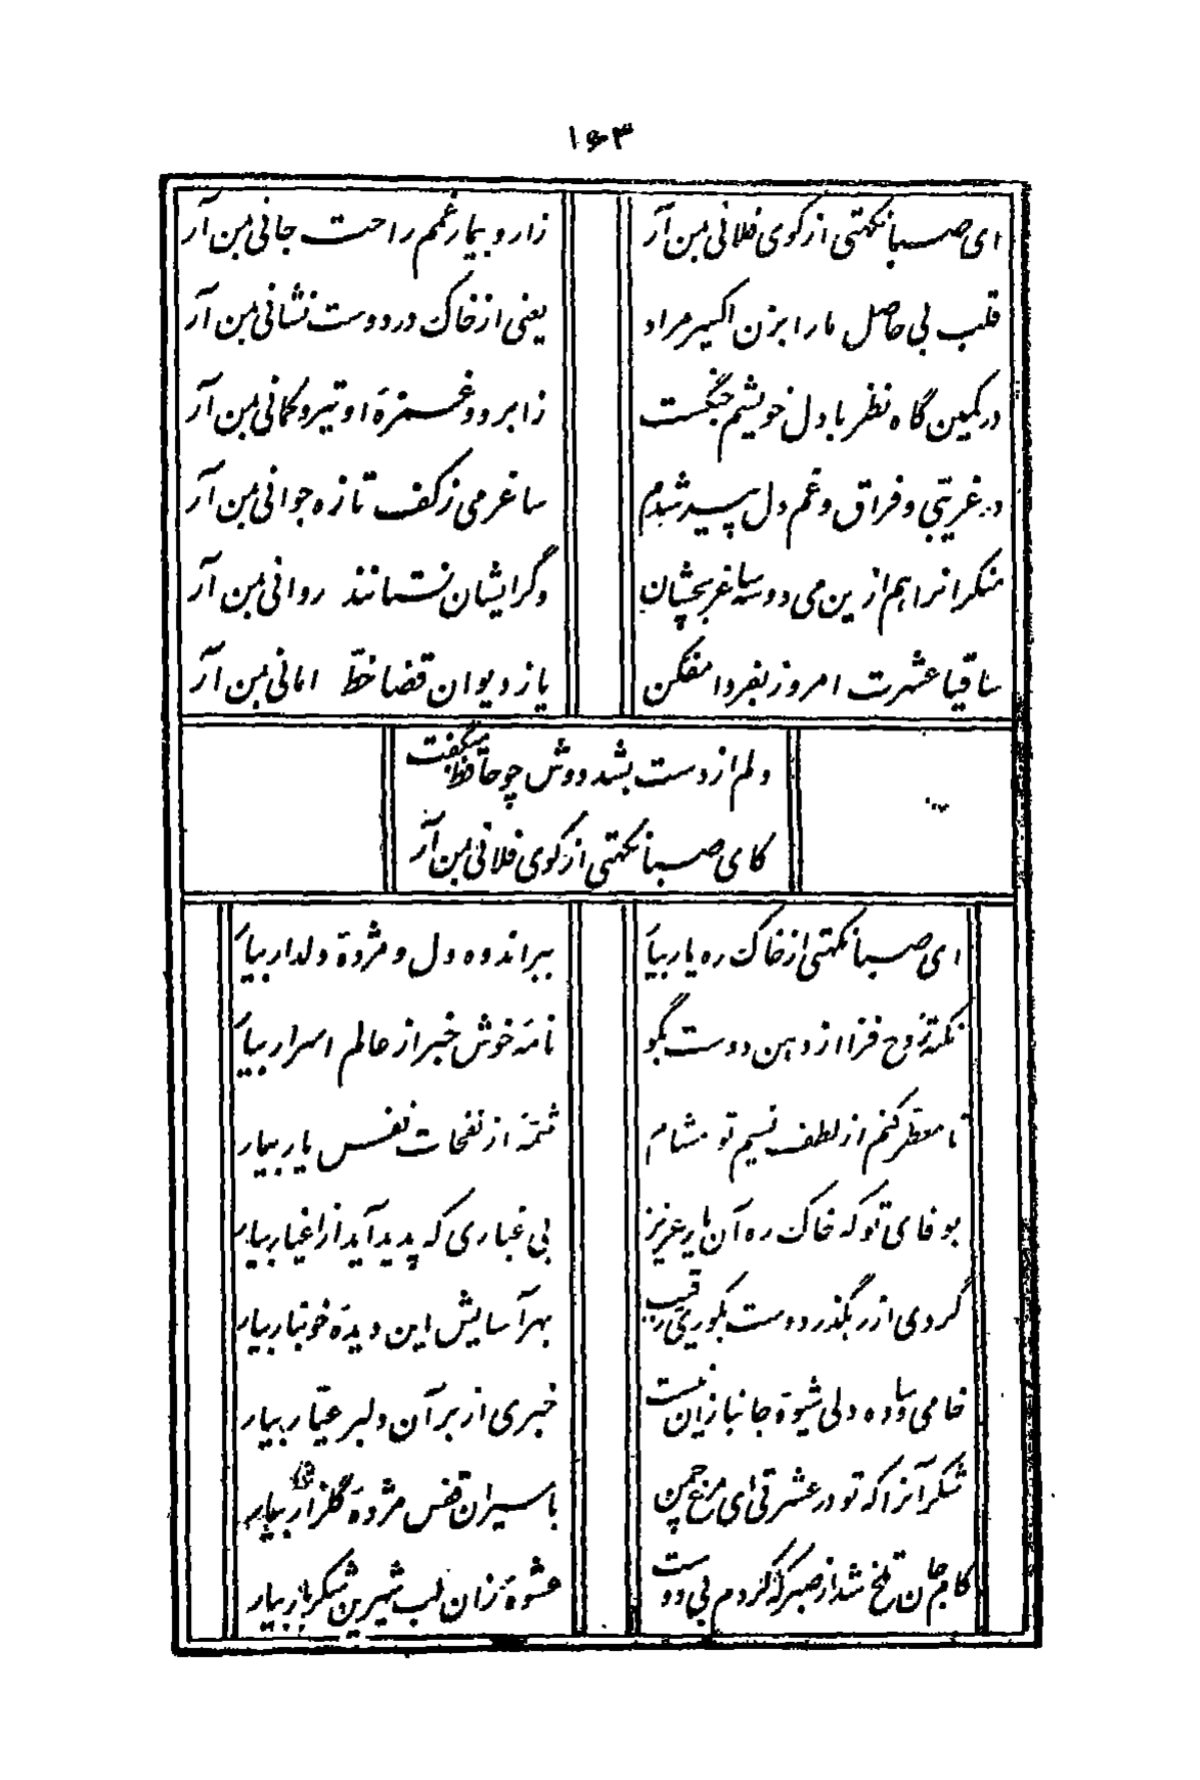 ۱۶۳
ای صبا نکهتی از کوی فلانی بمن آر
زار و بیمار غمم راحت جانی بمن آر
قلب بی حاصل ما را بزن اکسیر مراد
یعنی از خاک در دوست نشانی بمن آر
در کمین گاه نظر با دل خویشم جنگست
ز ابرو و غمزهٔ او تیر و کمانی بمن آر
در غریبی و فراق و غم دل پیر شدم
ساغر می ز کف تازه جوانی بمن آر
منکرانرا هم ازین می دو سه ساغر بچشان
وگر ایشان نستانند روانی بمن آر
ساقیا عشرت امروز بفردا مفکن
یا ز دیوان قضا خطّ امانی بمن آر
دلم از دست بشد دوش چو حافظ میگفت
کای صبا نکهتی از کوی فلانی بمن آر
ای صبا نکهتی از خاک ره یار بیار
ببر اندوه دل و مژدهٔ دلدار بیار
نکتهٔ روح فزا از دهن دوست بگو
نامهٔ خوش خبر از عالم اسرار بیار
تا معطر کنم از لطف نسیم تو مشام
شمّهٔ از نفحات نفس یار بیار
بوفای تو که خاک ره آن یار عزیز
بی غباری که پدید آید از اغیار بیار
گردی از رهگذر دوست بکوری رقیب
بهر آسایش این دیدهٔ خونبار بیار
خامی و ساده دلی شیوهٔ جانبازان نیست
خبری از بر آن دلبر عیّار بیار
شکر آنرا که تو در عشرتی ای مرغ چمن
باسیران قفس مژدهٔ گلزار بیار
کام جان تلخ شد از صبر که کردم بی دوست
عشوهٔ زان لب شیرین شکر بار بیار